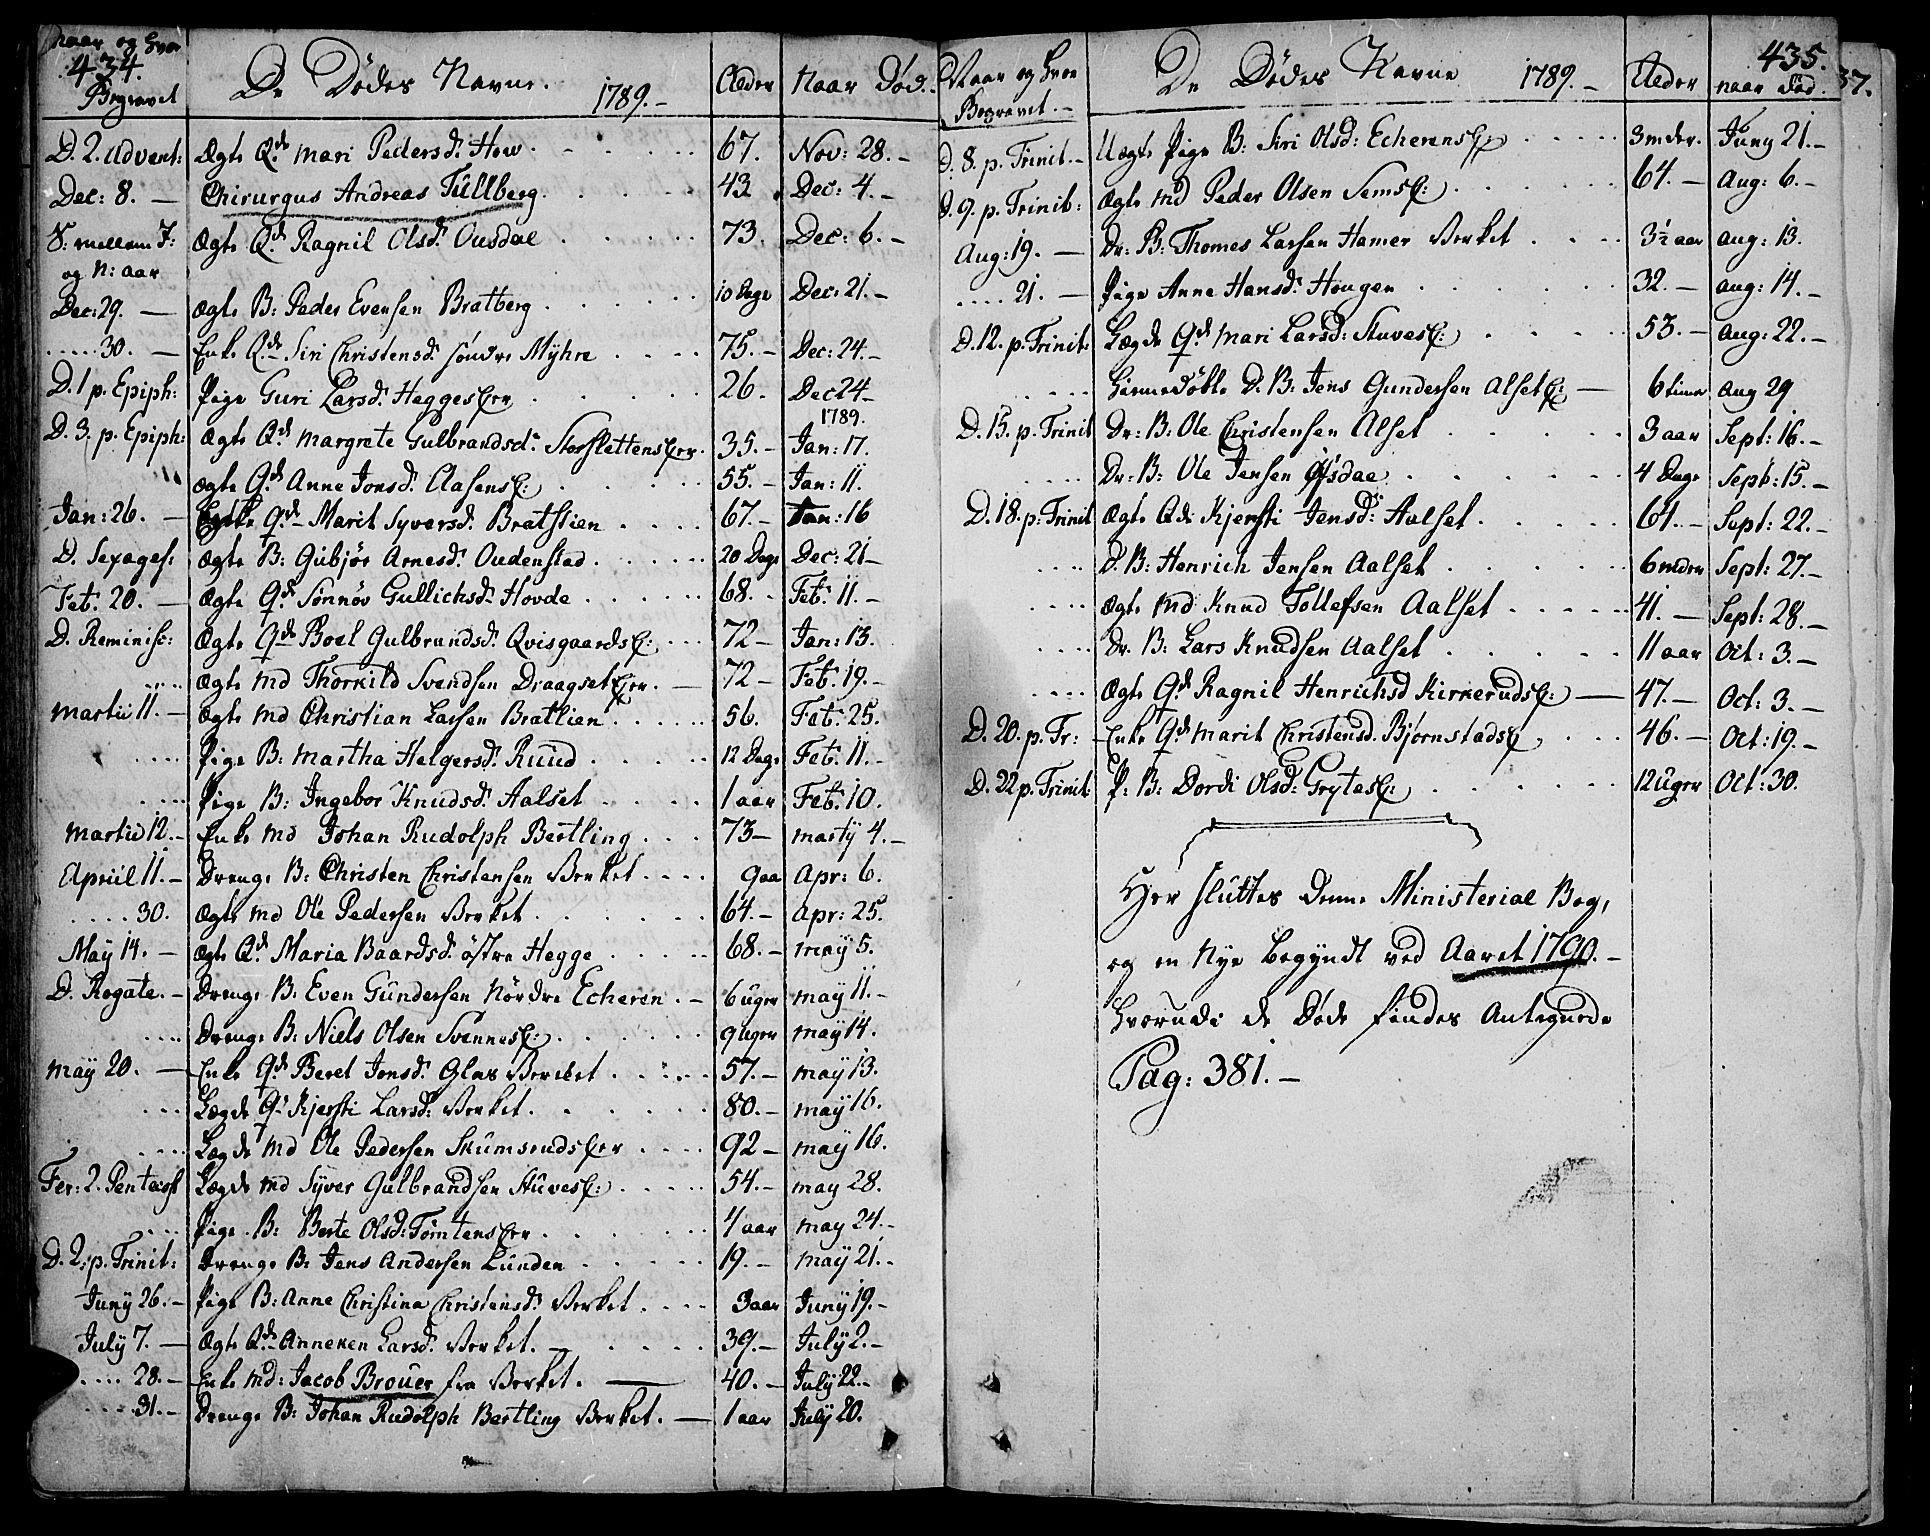 Naar og hvor
434.
Begravet
De Dødes Navne. 1789.-
Alder
Naar Død.
D. 2. Advent: Ægte Qde Mari Pedersd: How 67. Nov: 28.-
Dec: 8. - Chirurgus Andreas Tüllberg 43 Dec: 4.-
S: mellem J: og N: aar Ægte Qde Ragnil Olsd: Ousdal 73. Dec: 6.-
Dec: 29. - Ægte B: Peder Evensen Bratberg 10 Dage Dec: 21.-
30. - Enke Qde Siri Christensd: søndre Myhre 75.- Dec: 24.-
D. 1 p. Epiph: Pige Guri Larsd: Hegges 26. Dec 24-
1789.
D. 3. p. Epiph: Ægte Qde Margrete Gulbrandsd: Storslettens 35.- Jan: 17.
Ægte Qde Anne Jonsd: Clasens 55.- Jan: 11.
Jan: 26. - Enke Qde Marit Syversd: Bratlien 67.- Jan: 16
D. Sexages: Ægte B: Gubjør Arnesd: Oudenstad 20 Dage Dec: 21-
Feb: 20. - Ægte Qde Sønnøv Gullichsd: Hovde 68.- Feb: 11.-
D. Reminisc: Ægte Qde Boel Gulbrandsd: Qvisgaards 72- Jan: 13.
Ægte Md Thorkild Svendsen Draagset 72- Feb: 19.-
Martii 11. - Ægte Md Christian Larsen Bratlien 56. Feb: 25.
Pige B: Martha Helgersd: Ruud 12 Dage Feb: 11.-
Pige B: Ingebor Knudsd: Aalset 1 aar Feb: 10.
Martii 12.- Enke Md Johan Rudolph Bertling 73- Marty 4.-
Apriil 11.- Drenge B: Christen Christensen Verket 9 aa Apr: 6.
30. Ægte Md Ole Pedersen Verket 64.- Apr: 25.
May 14. - Ægte Qde Maria Baardsd: østre Hegge 68.- May 5.
D. Rogate.- Drenge B: Even Gundersen Nordre Echeren 6 uger May 11.-
Drenge B: Niels Olsen Svennes 9 Uger May 14.
May 20. - Enke Qde Beret Jonsd: Glas Verket 57.- May 13.
Lægde Qde Kjersti Larsd: Verket 80.- May 16.
Lægde Md Ole Pedersen Skumsruds 92- May 16.
Fer: 2. Pentecost Lægde Md Syver Gulbrandsen Stuves 54.- May 28.
Pige B: Berte Olsd: Tomtens 4 aar May 24.-
D. 2. p. Trinit: Drenge B: Jens Andersen Lunden 19.- May 21.-
Juny 26.- Pige B: Anne Christina Christensd: Verket 3 aar Juny 19.-
July 7. - Ægte Qde Anneken Larsd: Verket. 39.- July 2.-
28.- Enke Md: Jacob Brouer fra Verket. 40.- July 22.-
31.- Drenge B: Johan Rudolph Bertling Verket. 1 aar July 20.
Naar og hvor
Begravet.-
De Dødes Navne 1789.-
Alder
435.
naar Død.
37.
D. 8. p. Trinit.- Uægte Pige B: Siri Olsd: Echerens 3 mdr. Juny 21.-
D. 9. p. Trinit: Ægte Md Peder Olsen Sems 64.- Aug: 6.-
Aug: 19. - Dr: B: Thomes Larsen Hamer Verket 3½ aar Aug: 13.
21. - Pige Anne Hansd: Hougen 32.- Aug: 14.-
D. 12. p. Trinit: Lægde Qde Mari Larsd: Stuves 53.- Aug: 22.-
hiemedøbte D: B: Jens Gundersen Alset 6 timer Aug 29
D. 15. p. Trinit Dr: B: Ole Christensen Alset 3 aar Sept: 16.-
Dr: B: Ole Jensen 4 Dage Sept: 15.-
D. 18. p. Trinit Ægte Qde Kjersti Jensd: Aalset 61.- Sept: 22.-
D. B: Henrich Jensen Aalset 6 mdr Sept: 27.-
Ægte Md Knud Tollefsen Aalset 41.- Sept: 28.-
Dr. B: Lars Knudsen Aalset 11 aar Oct: 3.-
Ægte Qde Ragnil Henrichsd Kirkeruds 47.- Oct: 3.-
D. 20. p. Tr: Enke Qde Marit Christensd: Bjørnstads 46.- Oct: 19.-
D. 22 p. Trinit: P: B: Dordi Olsd: Grytes 12 Uger Oct: 30.
Her sluttes denne Ministerial Bog,
og en Nye begyndt ved Aaret 1790.-
hvorudi de Døde findes Antegnede
Pag: 381.-